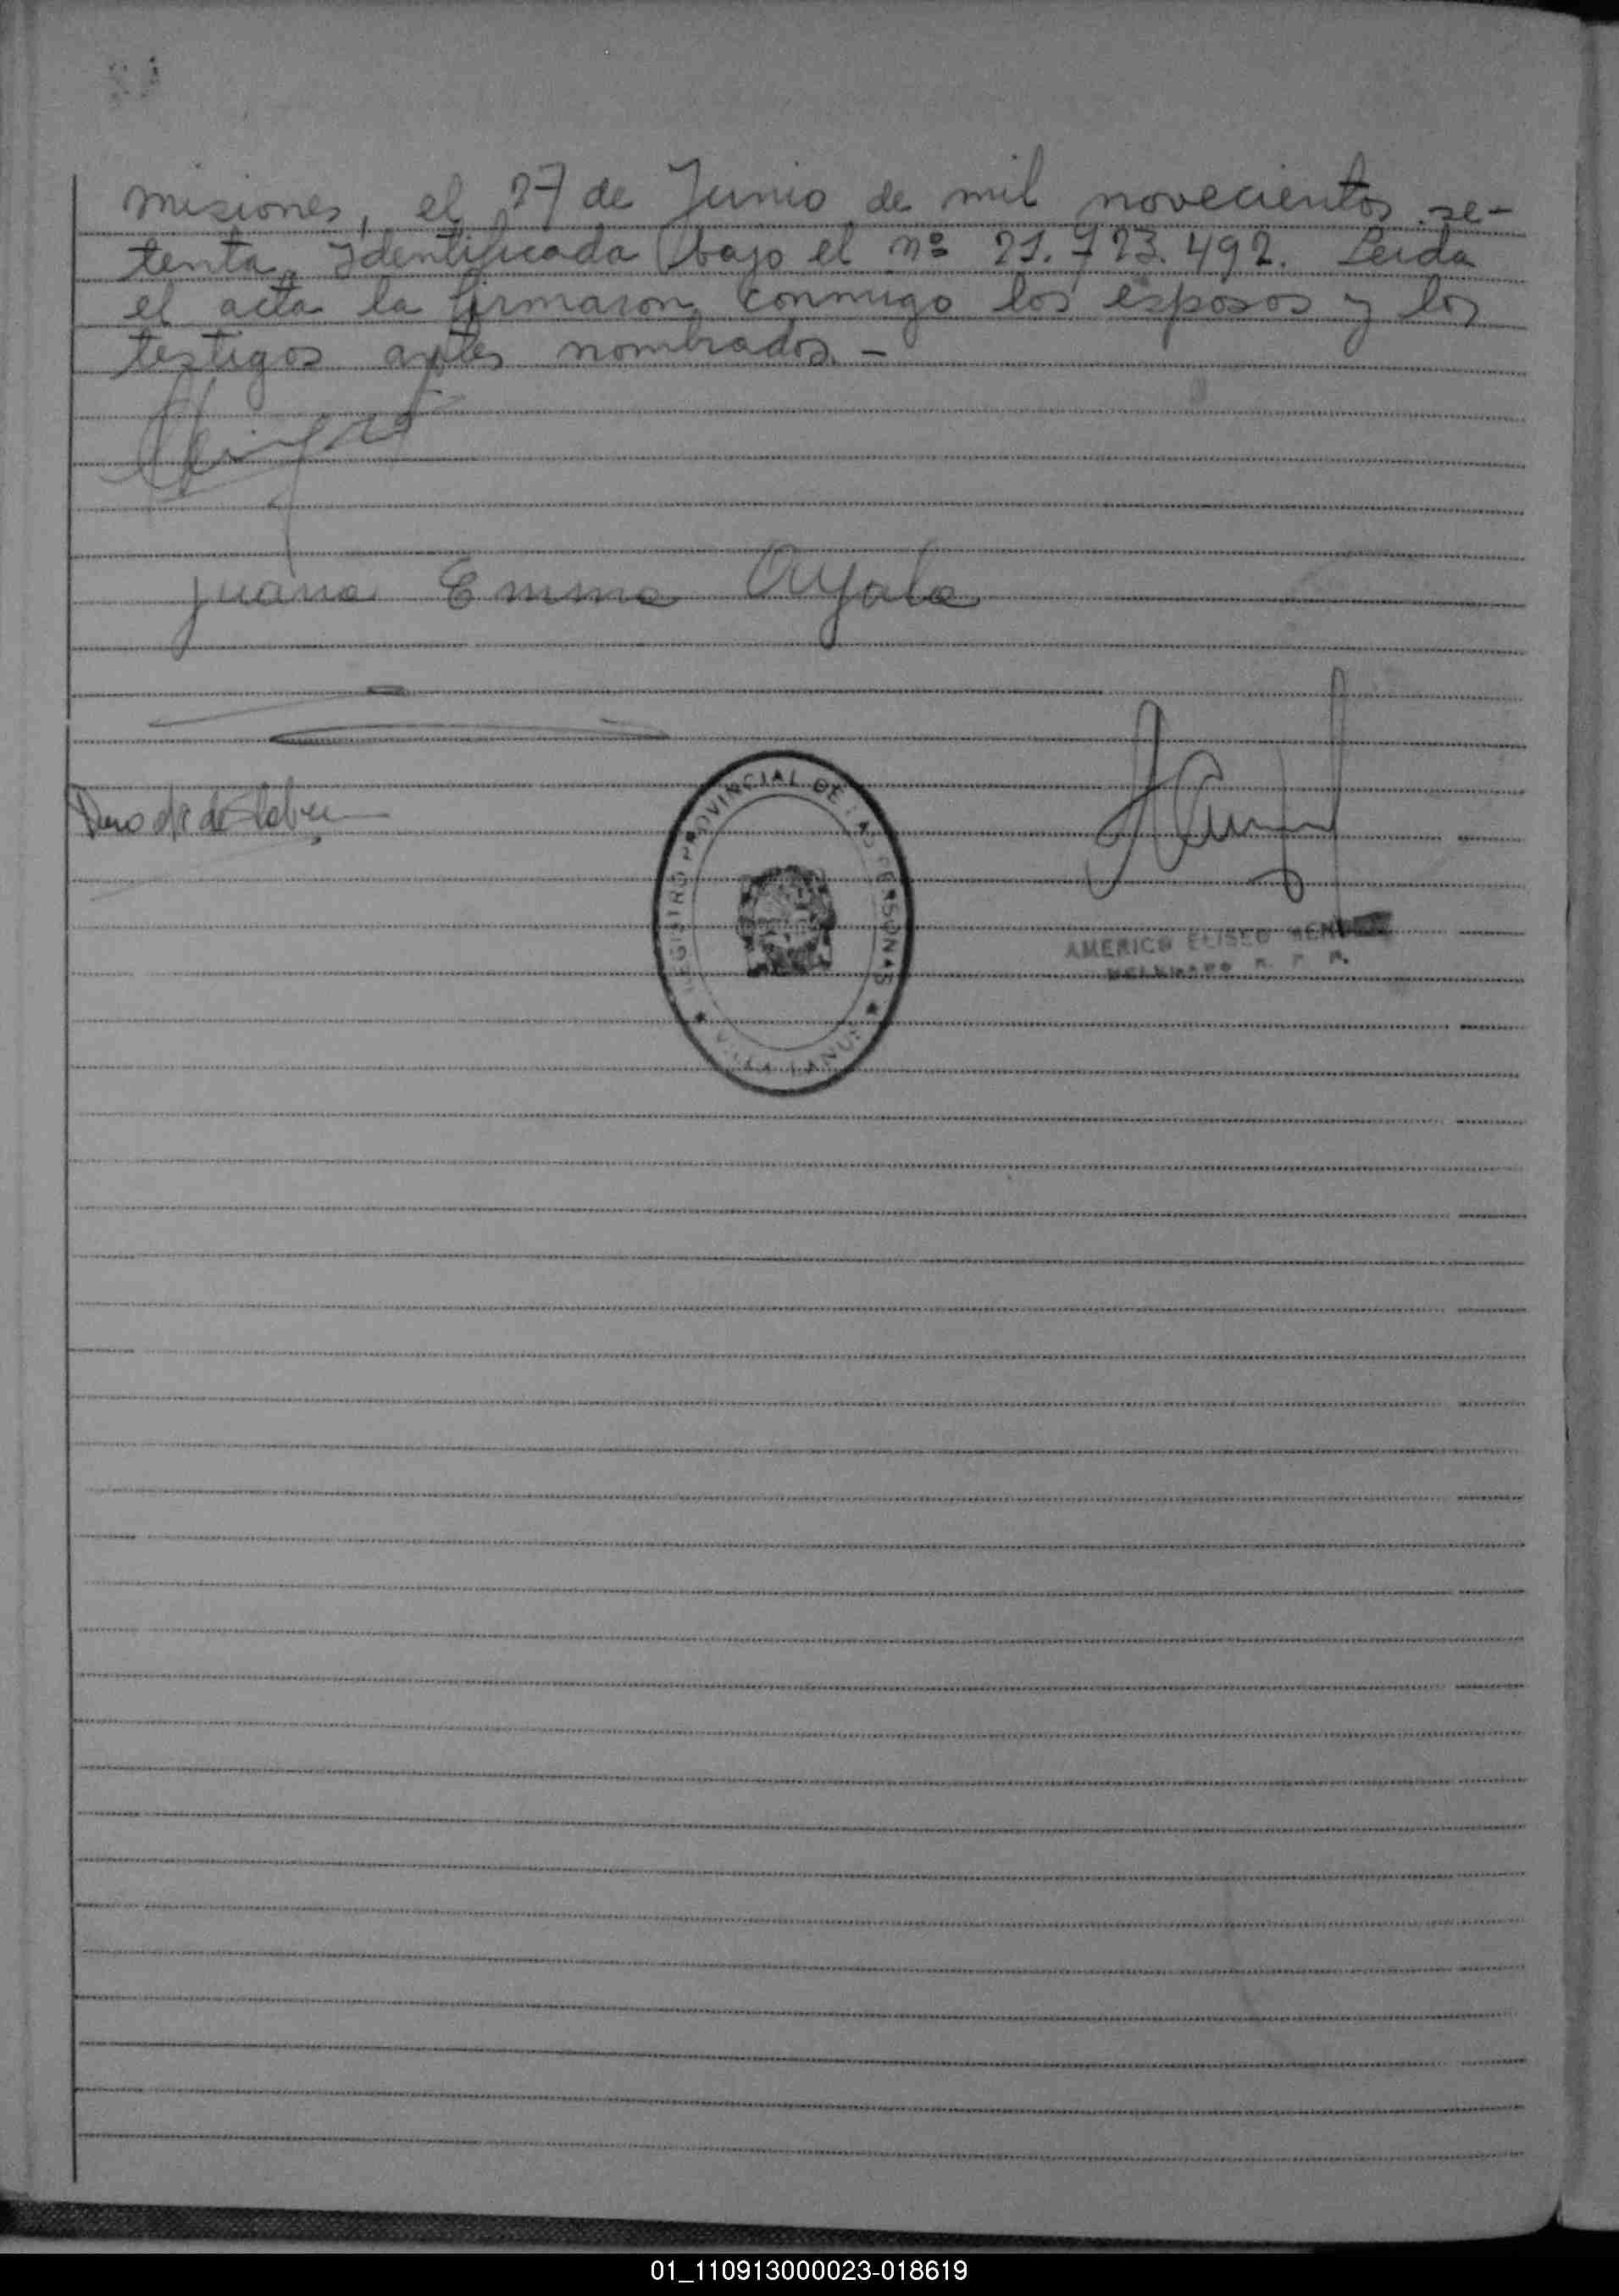 misiones, el 27 de Junio de mil novecientos se-
tenta, Identificada bajo el nº 21.723.492. Leida
el acta la firmaron conmigo los esposos y los
testigos antes nombrados. -
Juana Emma Ayala
REGISTRO PROVINCIAL DE LAS PERSONAS
VILLA LANUS
AMERICO ELISEO
DELEGADO R. P. P.
01_110913000023-018619